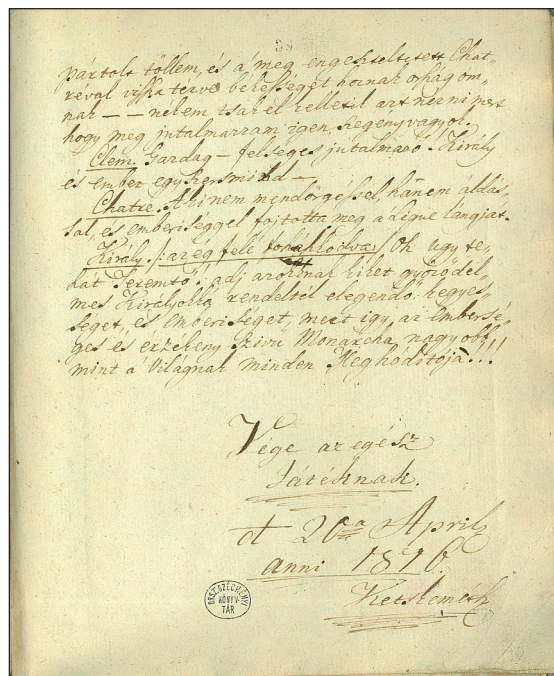 pártolt töllem, és a' meg engeszteltetett Chat-
réval viszsza térve békességet hoznak országom,
nak — — nékem tsak el kelletik azt nézni mert
hogy meg jutalmazzam igen szegény vagyok.
Clem. Gazdag — felséges jutalmazó! Király
és ember egyszersmind —
Chatre. A ki nem mendörgéssel, hanem áldás-
sal, és emberiséggel fojtotta meg a Ligue lángját.
Király. /: az ég felé :/ Oh úgy te-
hát Teremtő! adj azoknak kiket győzödel,
mes Királyokká rendeltél elegendő kegyes-
séget, és emberiséget, mert így, az embersé-
ges és érzékeny szívű Monarcha nagyobb
mint a Világnak minden Meghódítója!!!
Vége az egész
Játéknak.
d 20a April
anni 1816.
Ketskemeth
ORSZ. SZÉCHÉNYI
KÖNYV-
TÁR